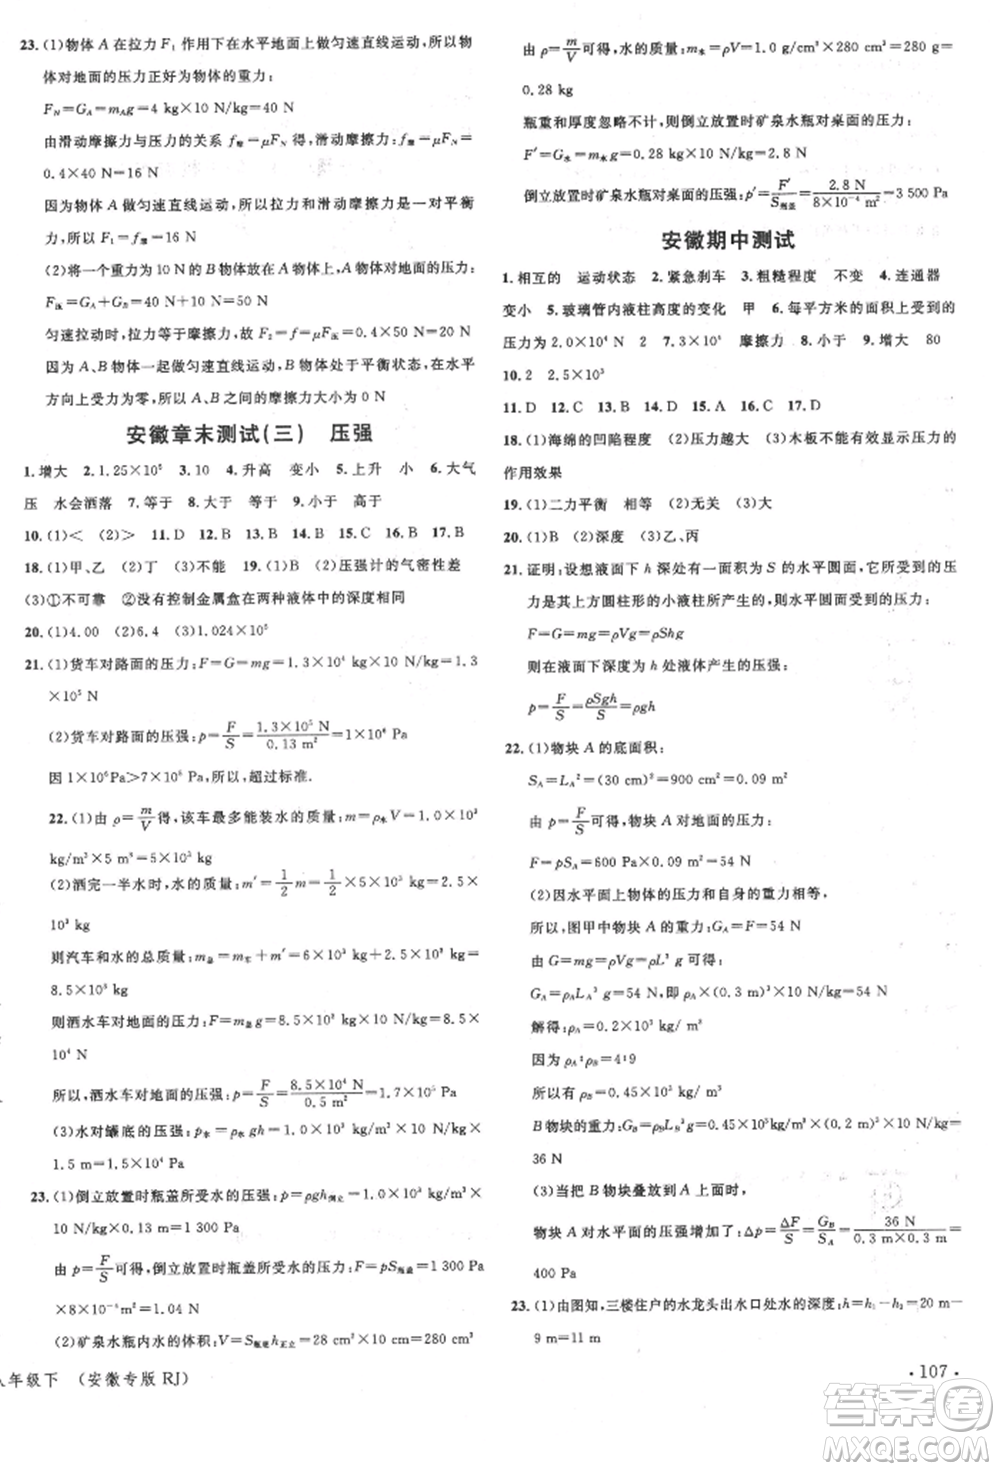 23.(1)物体 A 在拉力 F₁ 作用下在水平地面上做匀速直线运动,所以物
体对地面的压力正好为物体的重力:
F_N=G_A=m_Ag=4 kg×10 N/kg=40 N
由滑动摩擦力与压力的关系 f滑=μF_N 得,滑动摩擦力:f滑=
0.4×40 N=16 N
因为物体 A 做匀速直线运动,所以拉力和滑动摩擦力是一对平衡
力,所以 F₁=f滑=16 N
(2)将一个重力为 10 N 的 B 物体放在 A 上,物体对地面的压力:
F压=G_A+G_B=40 N+10 N=50 N
匀速拉动时,拉力等于摩擦力,故 F₂=f=μF压=0.4×50 N=20 N
因为 A、B 物体一起做匀速直线运动,B 物体处于平衡状态,在水平
方向上受力为 0,所以 A、B 之间的摩擦力大小为 0 N
安徽章末测试(三) 压强
1.增大 2.1.25×10⁵ 3.10 4.升高 变小 5.上升 小 6.大气
压 水会洒落 7.等于 8.大于 等于 9.小于 大于
10.(1)< (2)> 11.D 12.B 13.B 14.C 15.B 16.B 17.B
18.(1)甲、乙 (2)丁 (3)不能 19.(1)B (2)压强计的气密性差
(3)①不可靠 ②没有控制金属盒在两种液体中的深度相同
20.(1)4.00 (2)6.4 (3)1.024×10⁵
21.(1)货车对路面的压力:F=G=mg=1.3×10⁴ kg×10 N/kg=1.3
×10⁵ N
(2)货车对路面的压强:p=F/S=1.3×10⁵ N/0.13 m²=1×10⁶ Pa
因 1×10⁶Pa>7×10⁵ Pa,所以,超过标准.
22.(1)由 ρ=m/V 可得,该车最多能装水的质量:m=ρ水V=1.0×10³
kg/m³×5 m³=5×10³ kg
(2)洒完一半水时,水的质量:m′=1/2 m=1/2×5×10³ kg=2.5×
10³ kg
则汽车和水的总质量:m总=m车+m′=6×10³ kg+2.5×10³ kg=
8.5×10³ kg
则洒水车对地面的压力:F=m总g=8.5×10³ kg×10 N/kg=8.5×
10⁴ N
所以,洒水车对地面的压强:p=F/S=8.5×10⁴ N/0.5 m²=1.7×10⁵ Pa
(3)水对罐底的压强:p水=ρ水gh=1.0×10³ kg/m³×10 N/kg×
1.5 m=1.5×10⁴ Pa
23.(1)倒立放置时瓶盖所受水的压强:p=ρgh倒立=1.0×10³ kg/m³
×10 N/kg×0.13 m=1 300 Pa
由 p=F/S 可得,倒立放置时瓶盖所受水的压力:F=pS瓶盖=1 300 Pa
×8×10⁻⁴ m²=1.04 N
(2)矿泉水瓶内水的体积:V=S瓶底h正立=28 cm²×10 cm=280 cm³
八年级下 (安徽专版 RJ)
由 ρ=m/V 可得,水的质量:m水=ρV=1.0 g/cm³×280 cm³=280 g=
0.28 kg
瓶重和厚度忽略不计,则倒立放置时矿泉水瓶对桌面的压力:
F′=G水=m水g=0.28 kg×10 N/kg=2.8 N
倒立放置时矿泉水瓶对桌面的压强:p′=F′/S瓶盖=2.8 N/8×10⁻⁴ m²=3 500 Pa
安徽期中测试
1.相互的 运动状态 2.紧急刹车 3.粗糙程度 不变 4.连通器
变小 5.玻璃管内液柱高度的变化 甲 6.每平方米的面积上受到的
压力为 2.0×10⁴ N 2 7.3×10⁵ 摩擦力 8.小于 9.增大 80
10.2 2.5×10³
11.D 12.C 13.D 14.D 15.A 16.C 17.D
18.(1)海绵的凹陷程度 (2)压力越大 (3)木板不能有效显示压力的
作用效果
19.(1)二力平衡 等于 (2)无关 (3)大
20.(1)B (2)深度 (3)乙、丙
21.证明:设想液面下 h 深处有一面积为 S 的水平圆面,它所受的压
力是其上方圆柱形的小液柱所产生的,则水平圆面受到的压力:
F=G=mg=ρVg=ρShg
则在液面下深度为 h 处液体产生的压强:
p=F/S=ρSgh/S=ρgh
22.(1)物块 A 的底面积:
S_A=L_A²=(30 cm)²=900 cm²=0.09 m²
由 p=F/S 可得,物块 A 对地面的压力:
F=pS_A=600 Pa×0.09 m²=54 N
(2)因水平面上物体的压力和自身的重力相等,
所以,图甲中物块 A 的重力:G_A=F=54 N
由 G=mg=ρVg=ρL³g 可得:
G_A=ρ_AL_A³g=54 N,即 ρ_A×(0.3 m)³×10 N/kg=54 N
解得:ρ_A=0.2×10³ kg/m³
因为 ρ_A:ρ_B=4:9
所以 ρ_B=0.45×10³ kg/m³
B 物块的重力:G_B=ρ_BL_B³g=0.45×10³ kg/m³×(0.2 m)³×10 N/kg=
36 N
(3)当把 B 物块叠放到 A 上面时,
物块 A 对水平面的压强增加了:Δp=ΔF/S=G_B/S_A=36 N/0.3 m×0.3 m=
400 Pa
23.(1)由图知,三楼住户的水龙头出水口处水的深度:h=h₁-h₂=20 m-
9 m=11 m
·107·
答案圈
MXQE.COM